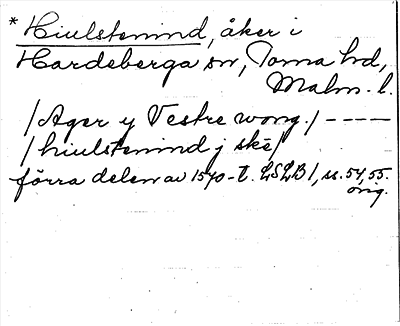 * Hiulstenind, åker i
Hardeberga sn, Torna hd,
Malm. l.
/Ager y Vestre wong./ ----
/hiulstenind j skē/
förra delen av 1540-t. LSLB 1, ss. 54, 55.
orig.